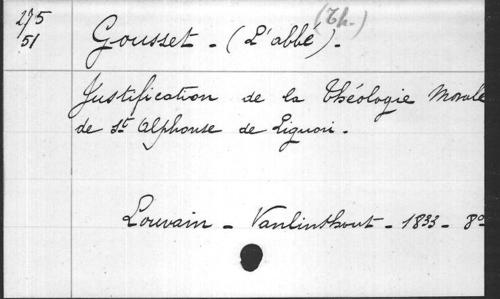 275
51
Gousset - (L'abbé) - (Th.)
Justification de la Théologie Morale
de St Alphonse de Liguori.
Louvain - Vanlinthout - 1833 - 8o